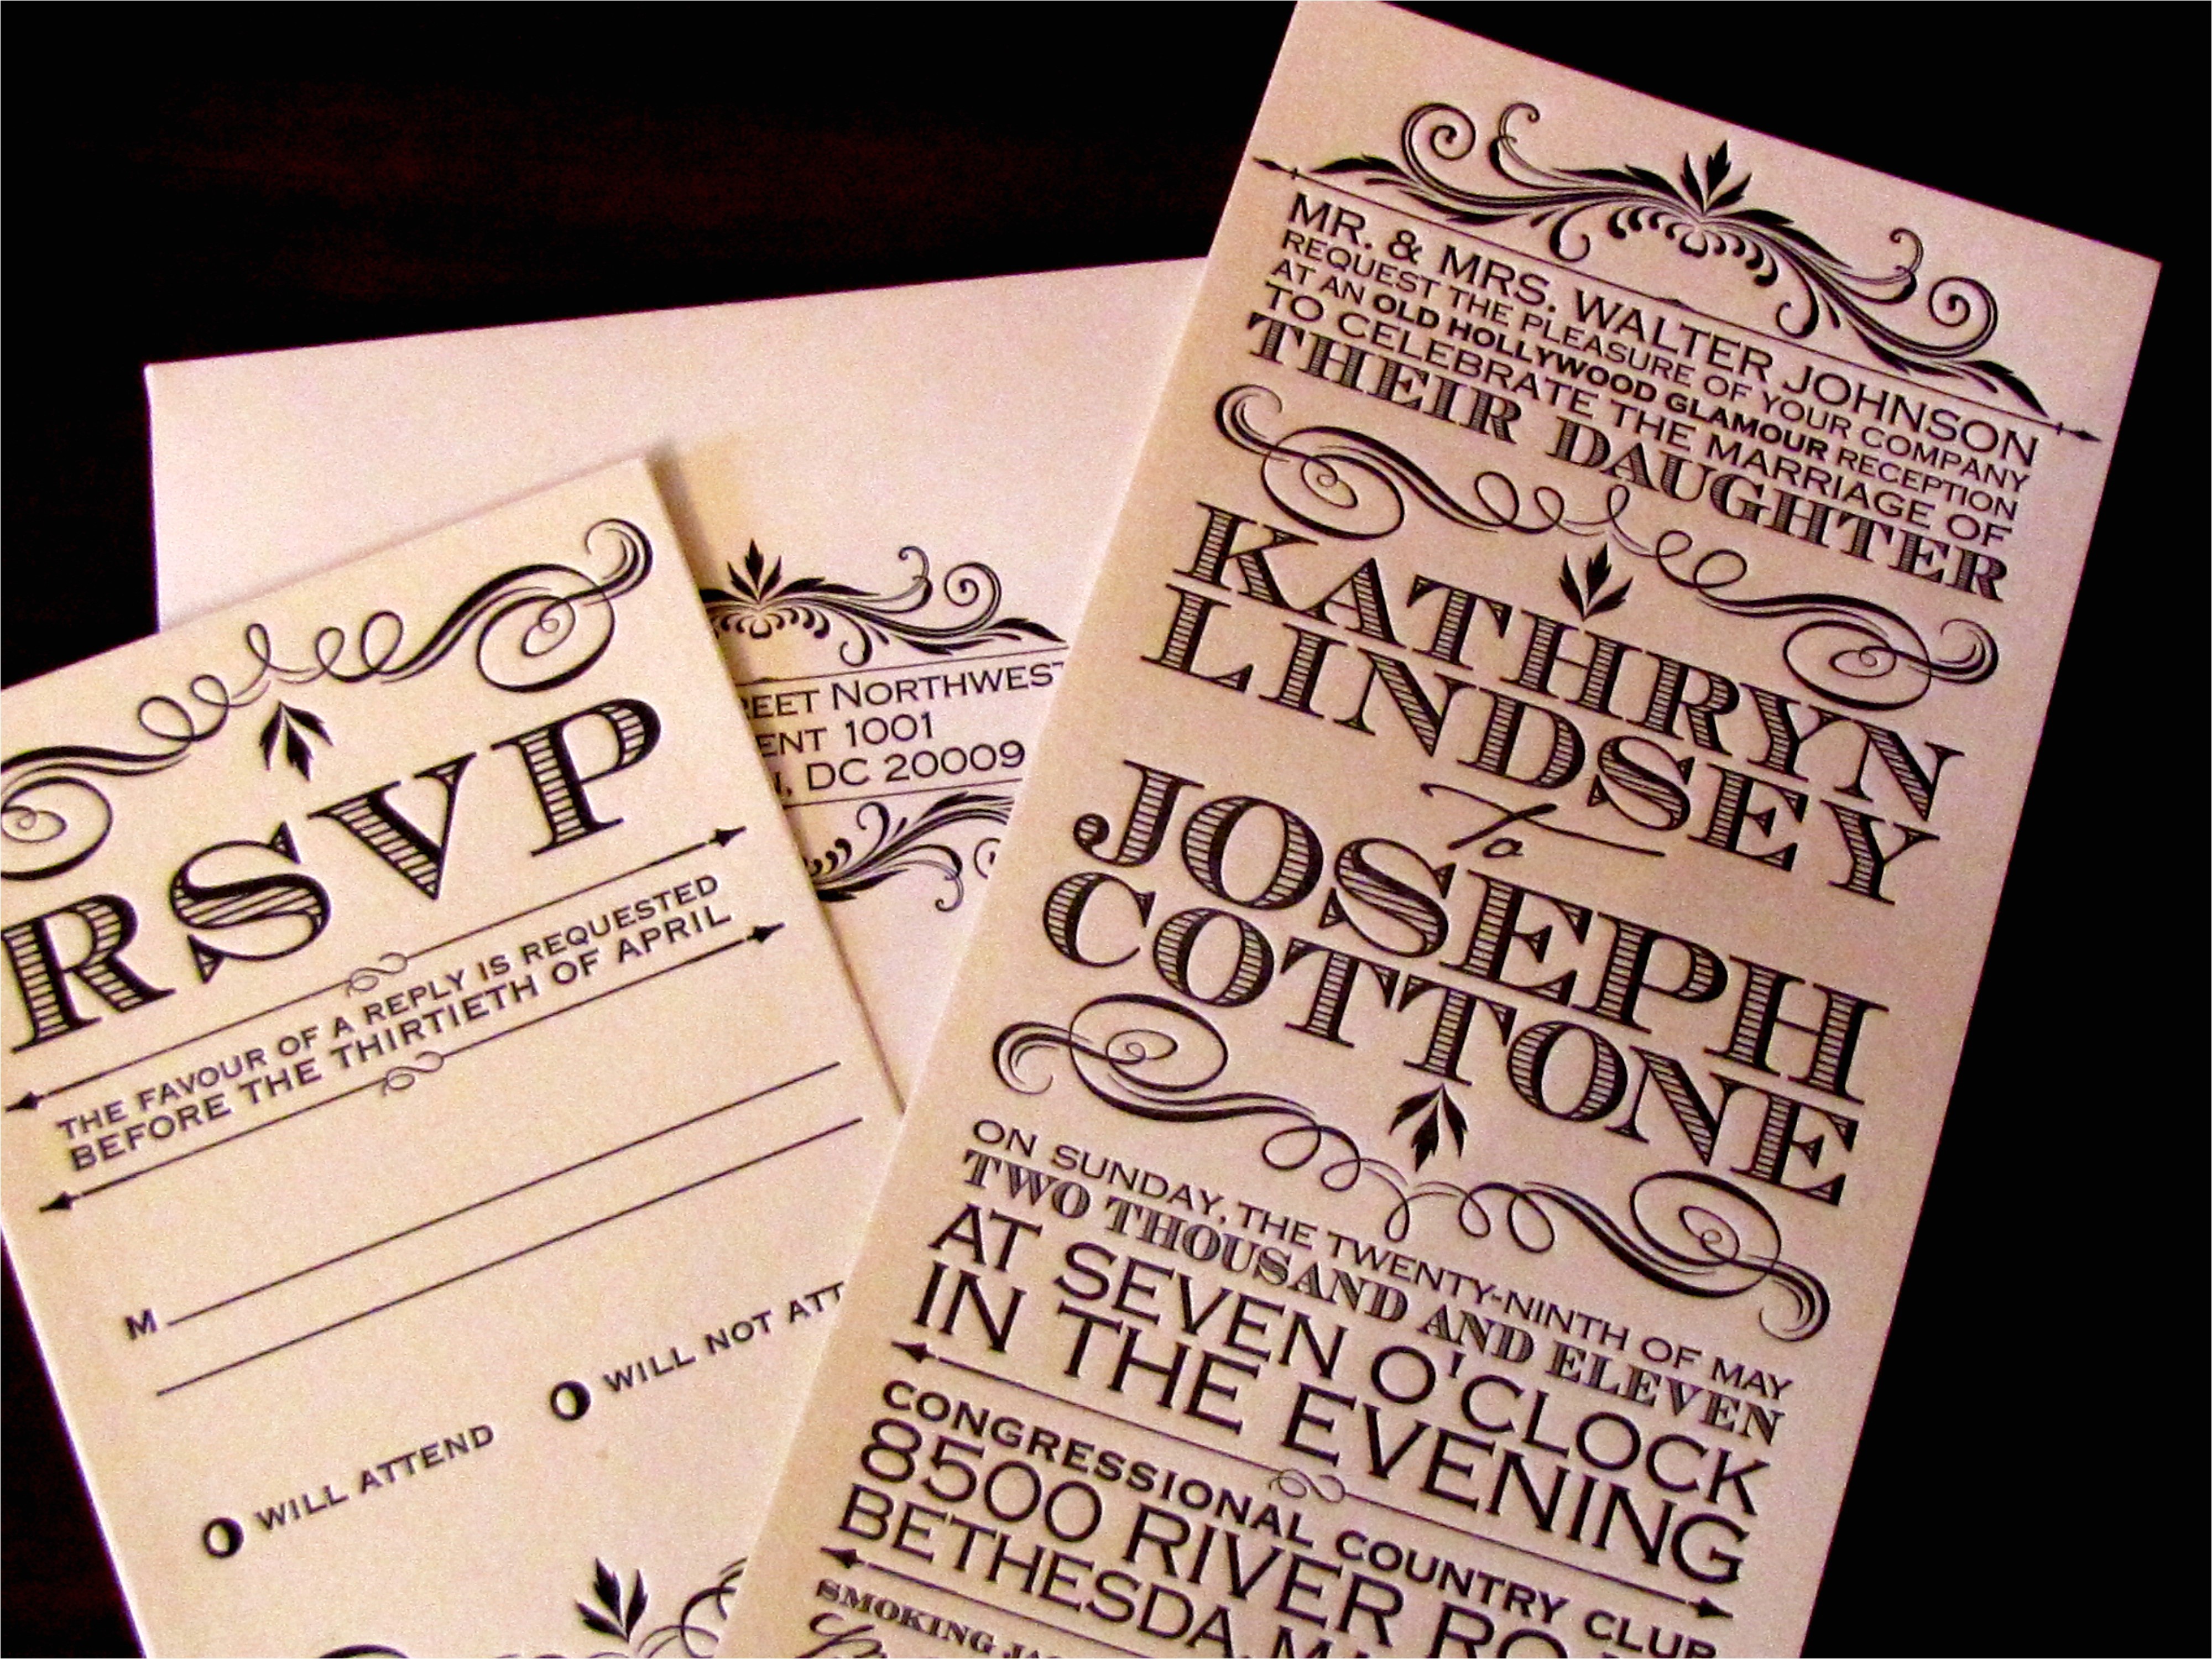 MR. & MRS. WALTER JOHNSON
REQUEST THE PLEASURE OF YOUR COMPANY
AT AN OLD HOLLYWOOD GLAMOUR RECEPTION
TO CELEBRATE THE MARRIAGE OF
THEIR DAUGHTER
KATHRYN
LINDSEY
To
JOSEPH
COTTONE
ON SUNDAY, THE TWENTY-NINTH OF MAY
TWO THOUSAND AND ELEVEN
AT SEVEN O'CLOCK
IN THE EVENING
CONGRESSIONAL COUNTRY CLUB
8500 RIVER RO
BETHESDA, MA
SMOKING JA
REET NORTHWEST
ENT 1001
, DC 20009
RSVP
THE FAVOUR OF A REPLY IS REQUESTED
BEFORE THE THIRTIETH OF APRIL
M
WILL ATTEND
WILL NOT ATT